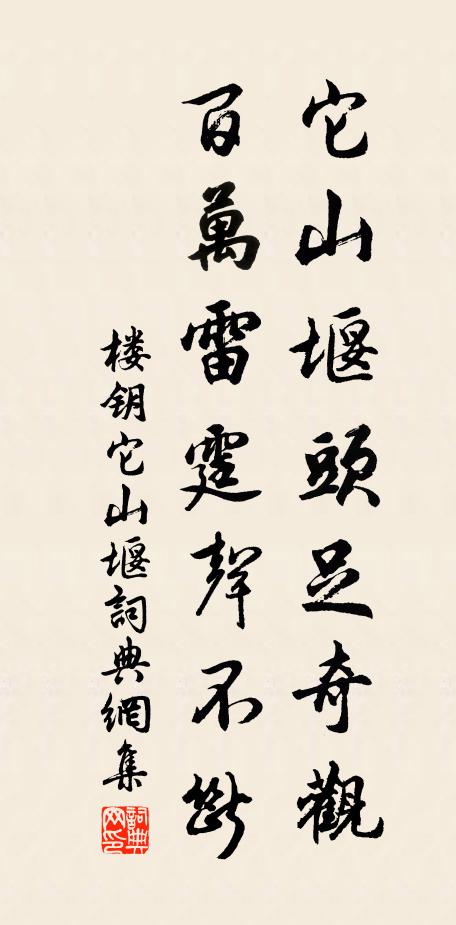 它山堰頭足奇觀
百萬雷霆聲不斷
楼钥它山堰詞典網集
詞典网印